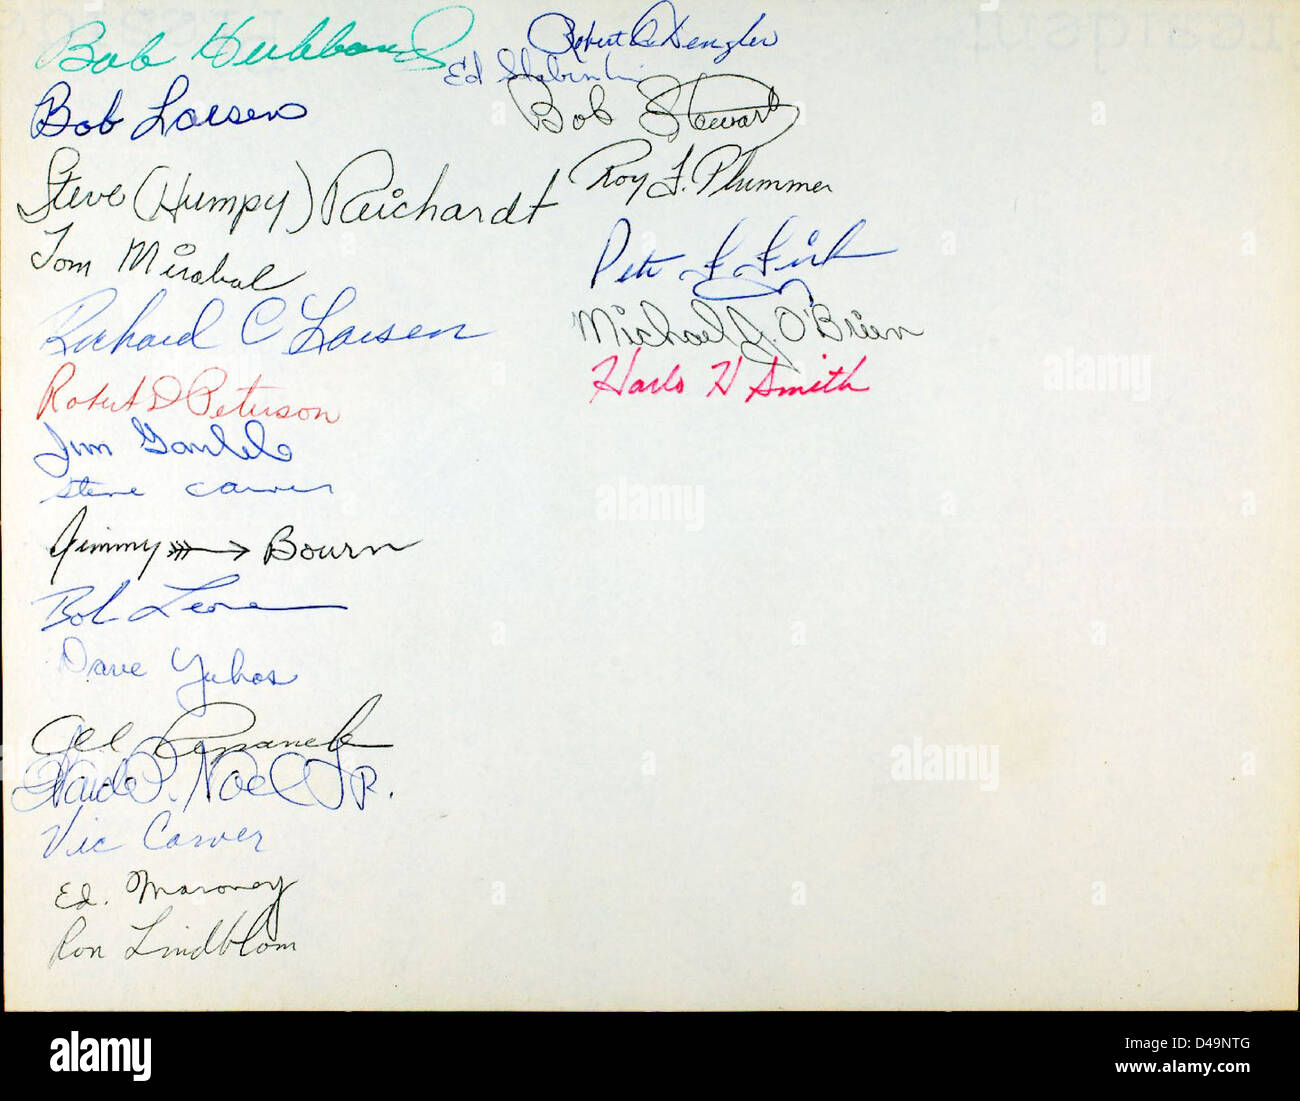 Bob Hubbard
Bob Larsen
Steve (Humpy) Reichardt
Tom Mirabal
Richard C Larsen
Robert D Peterson
Jim
Steve Carver
Jimmy Bourn
Bob Leone
Dave Yuhas
P. Noel Jr.
Vic Carver
Ed. Maroney
Ron Lindblom
Robert Dengler
Ed
Bob Stewart
Roy F. Plummer
Pete F Fish
Michael J. O'Brien
Harlo H Smith
alamy
alamy
alamy
alamy
a
a
a
a
a
a
a
a
alamy
Image ID: D49NTG
www.alamy.com